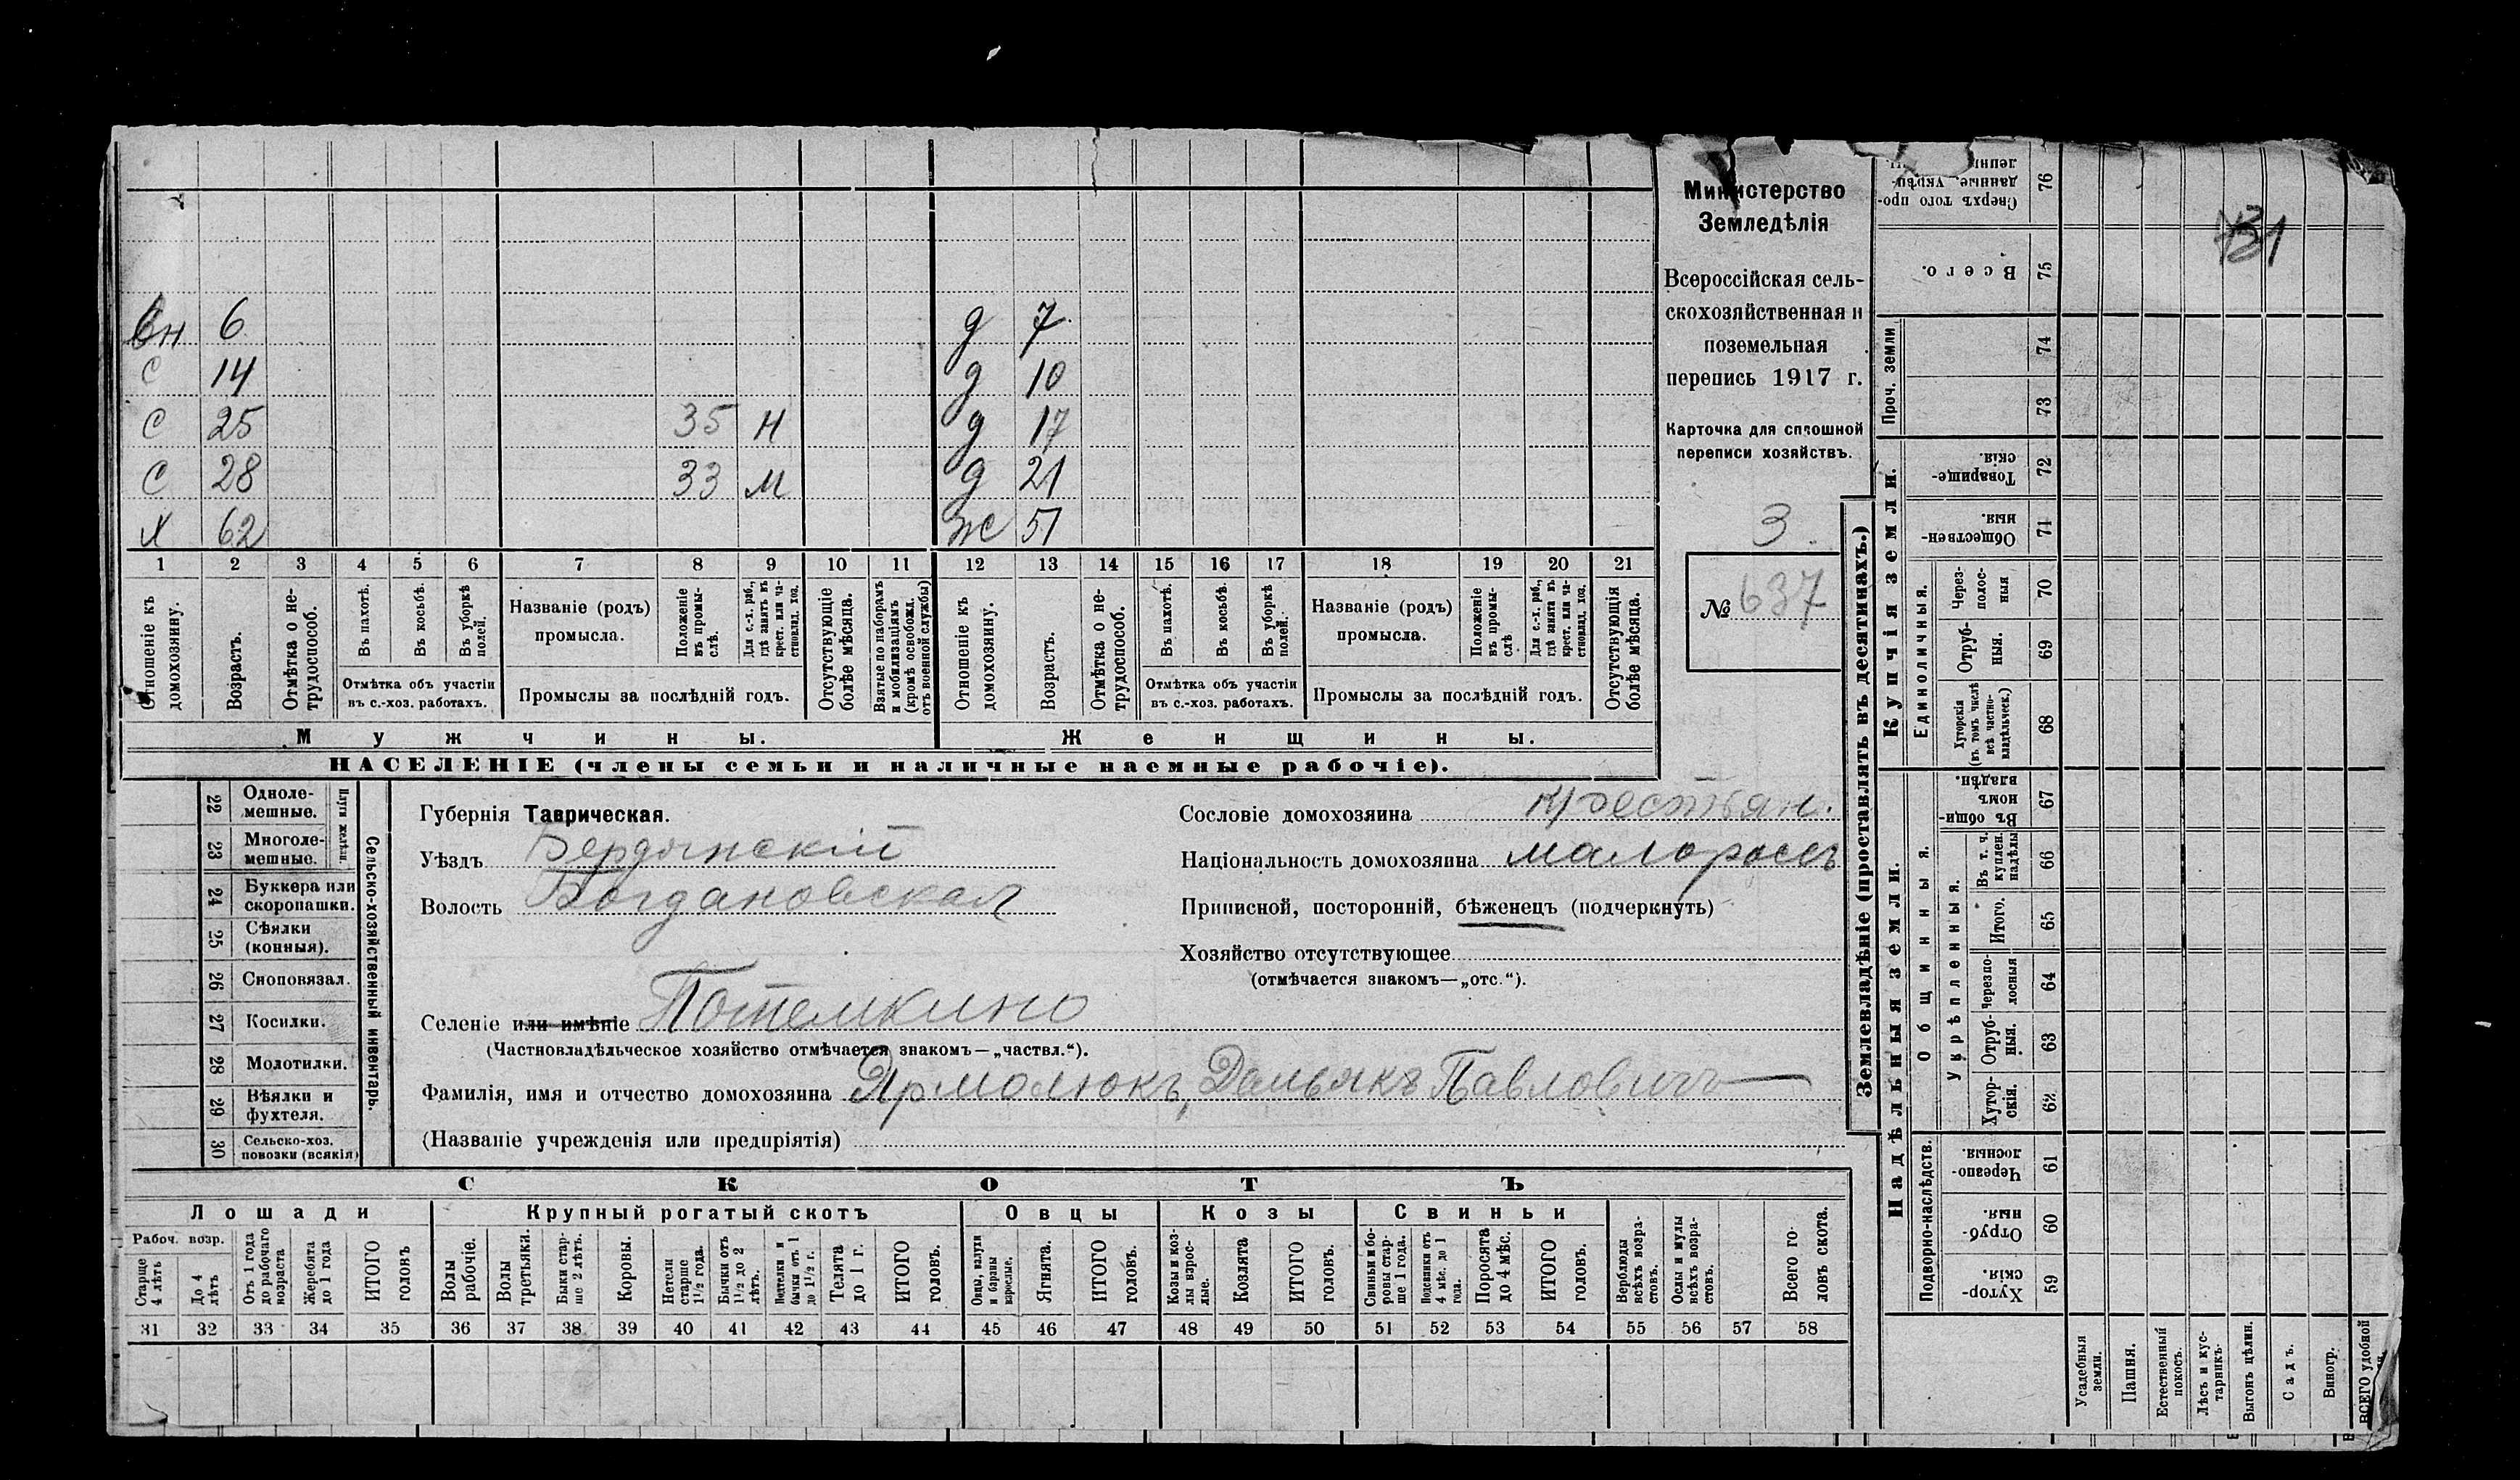 Министерство
Земледѣлія
Всероссійская сель-
скохозяйственная и
поземельная
перепись 1917 г.
Карточка для сплошной
переписи хозяйствъ.
3.
№ 637
431
вн 6 д 7
с 14 д 10
с 25 35 н д 17
с 28 33 м д 21
х 62 ж 51
1 2 3 4 5 6 7 8 9 10 11 12 13 14 15 16 17 18 19 20 21
Отношеніе къ домохозяину.
Возрастъ.
Отмѣтка о не-трудоспособ.
Въ пахотѣ.
Въ косьбѣ.
Въ уборкѣ полей.
Отмѣтка объ участіи
въ с.-хоз. работахъ.
Названіе (родъ)
промысла.
Положеніе въ промы-слѣ.
Для с.-х. раб., гдѣ занятъ въ крест. или ча-стновлад. хоз.
Промыслы за послѣдній годъ.
Отсутствующіе болѣе мѣсяца.
Взятые по наборамъ и мобилизаціямъ (кромѣ освобожд. отъ военной службы)
Отношеніе къ домохозяину.
Возрастъ.
Отмѣтка о не-трудоспособ.
Въ пахотѣ.
Въ косьбѣ.
Въ уборкѣ полей.
Отмѣтка объ участіи
въ с.-хоз. работахъ.
Названіе (родъ)
промысла.
Положеніе въ промы-слѣ
Для с.-х. раб., гдѣ занята въ крест. или ча-стновлад. хоз.
Промыслы за послѣдній годъ.
Отсутствующія болѣе мѣсяца.
Мужчины.
Женщины.
НАСЕЛЕНІЕ (члены семьи и наличные наемные рабочіе).
22 Одноле-мешные.
23 Многоле-мешные.
Плуги желѣзн.
24 Буккера или скоропашки.
25 Сѣялки (конныя).
26 Сноповязал.
27 Косилки.
28 Молотилки.
29 Вѣялки и фухтеля.
30 Сельско-хоз. повозки (всякія)
Сельско-хозяйственный инвентарь.
Губернія Таврическая.
Уѣздъ Бердянскій
Волость Богдановская
Селеніе или имѣніе Потемкино
(Частновладѣльческое хозяйство отмѣчается знакомъ — „частвл.“).
Фамилія, имя и отчество домохозяина Ярмолюкъ, Демьянъ Павловичъ
(Названіе учрежденія или предпріятія)
Сословіе домохозяина крестьян.
Національность домохозяина малороссъ
Приписной, посторонній, бѣженецъ (подчеркнуть)
Хозяйство отсутствующее
(отмѣчается знакомъ—„отс.“).
СКОТЪ
Лошади
Крупный рогатый скотъ
Овцы
Козы
Свиньи
Рабоч. возр.
Старше 4 лѣтъ
До 4 лѣтъ
Отъ 1 года до рабочаго возраста
Жеребята до 1 года
ИТОГО головъ
Волы рабочіе.
Волы третьяки.
Быки стар-ше 2 лѣтъ.
Коровы.
Нетели старше 1½ года.
Бычки отъ 1½ до 2 лѣтъ.
Подтелки и бычки отъ 1 до 1½ г.
Телята до 1 г.
ИТОГО головъ.
Овцы, валухи и бараны взрослые.
Ягнята.
ИТОГО головъ.
Козы и коз-лы взрос-лые.
Козлята
ИТОГО головъ.
Свиньи и бо-ровы стар-ше 1 года.
Подсвинки отъ 4 мѣс. до 1 года.
Поросята до 4 мѣс.
ИТОГО головъ.
Верблюды всѣхъ возра-стовъ.
Ослы и мулы всѣхъ возра-стовъ.
Всего го-ловъ скота.
31 32 33 34 35 36 37 38 39 40 41 42 43 44 45 46 47 48 49 50 51 52 53 54 55 56 57 58
Землевладѣніе (проставлять въ десятинахъ.)
Надѣльныя земли.
Купчія земли.
Проч. земли
Подворно-наслѣдств.
Общинныя.
Укрѣпленныя.
Единоличныя.
76 Сверхъ того про-данные, укрѣп-
75 Всего.
74
73
72 Товарище-скія.
71 Обществен-ныя.
70 Через-полос-ныя
69 Отруб-ныя.
68 Хуторскія (въ томъ числѣ всѣ частно-владѣльческ.)
67 Въ общин-номъ владѣн.
66 Въ т. ч. куплен. надѣлы
65 Итого.
64 Черезпо-лосныя
63 Отруб-ныя.
62 Хутор-скія.
61 Черезпо-лосныя.
60 Отруб-ныя.
59 Хутор-скія.
Усадебныя земли.
Пашня.
Естественный покосъ.
Лѣсъ и кус-тарникъ.
Выгонъ цѣлин.
Садъ.
Виногр.
ВСЕГО удобной